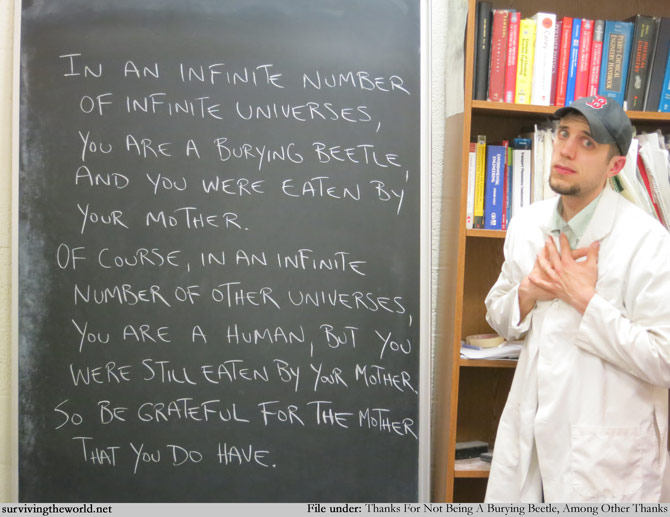 IN AN INFINITE NUMBER
OF INFINITE UNIVERSES,
YOU ARE A BURYING BEETLE,
AND YOU WERE EATEN BY
YOUR MOTHER.
OF COURSE, IN AN INFINITE
NUMBER OF OTHER UNIVERSES,
YOU ARE A HUMAN, BUT YOU
WERE STILL EATEN BY YOUR MOTHER.
SO BE GRATEFUL FOR THE MOTHER
THAT YOU DO HAVE.
survivingtheworld.net
File under: Thanks For Not Being A Burying Beetle, Among Other Thanks